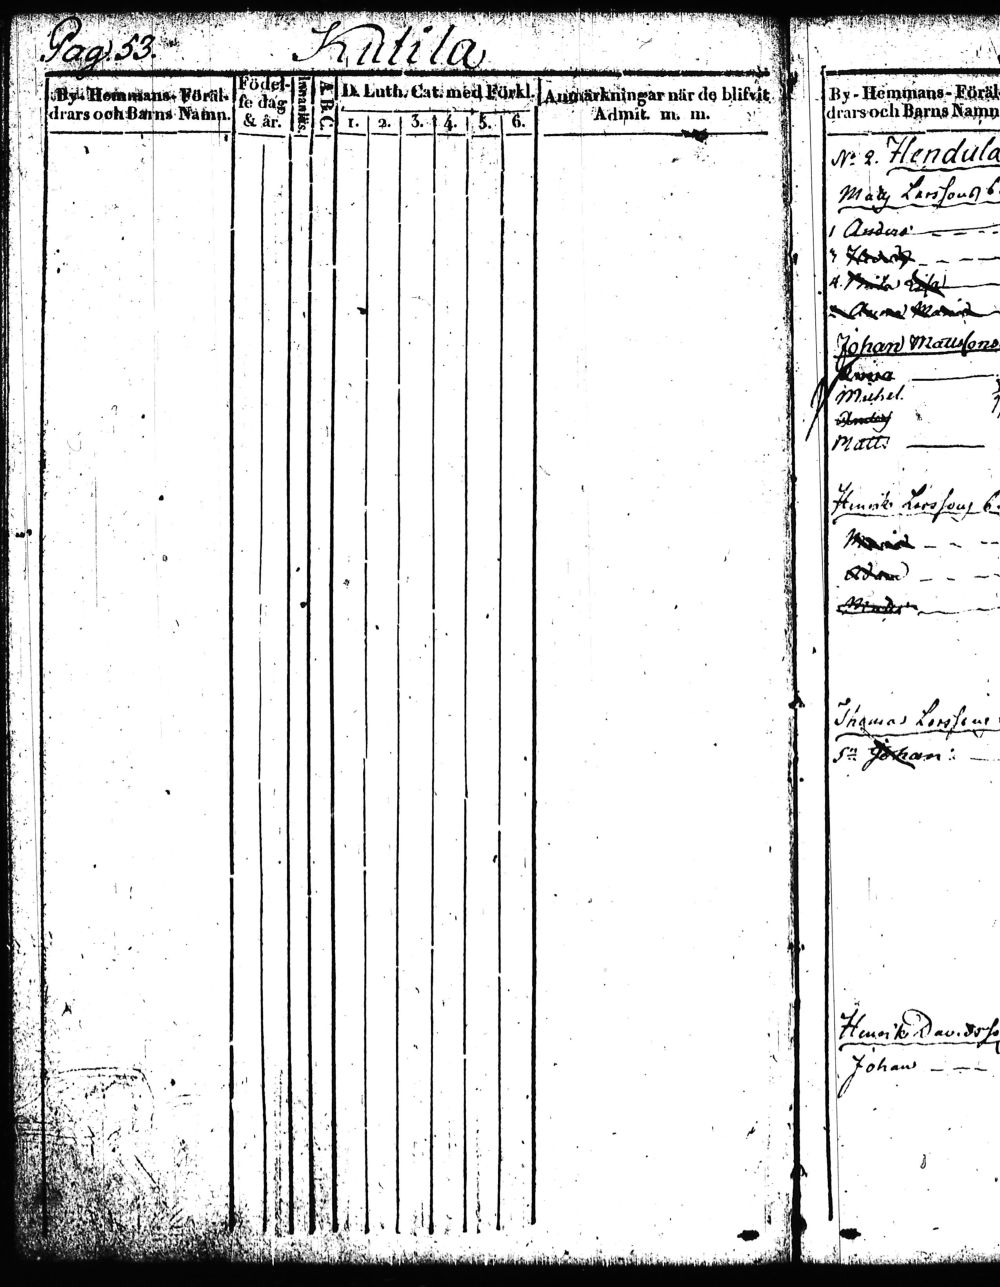 Pag. 53. Kutila
By- Hemmans- Föräl-
drars och Barns Namn.
Födel-
se dag
& år.
A. B. C.
D. Luth. Cat. med Förkl.
1. 2. 3. 4. 5. 6.
Anmärkningar när de blifvit
Admit. m. m.
By- Hemmans- Föräl-
drars och Barns Namn
No 2. Hendula
Matts Larssons
1 Anders
Johan Mattssons
Anna
Michel
Matts
Henrik Larssons
Maria
Adam
Thomas Larssons
Sn Johan
Henrik Davidsso
Johan